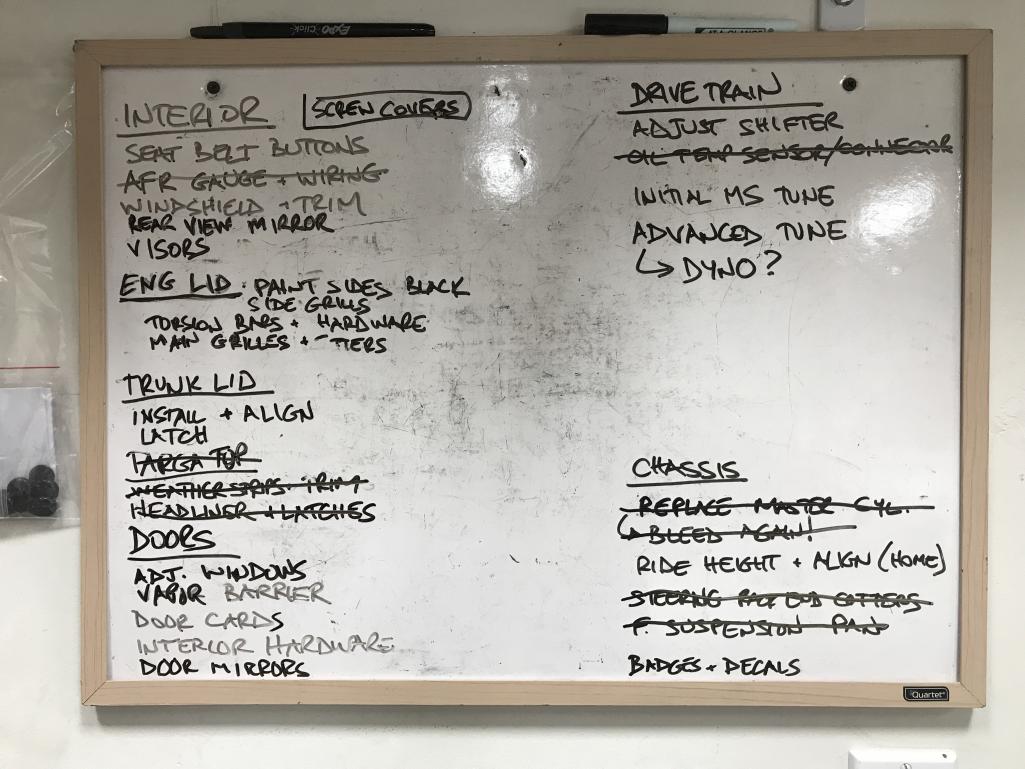 EXPO CLICK
INTERIOR
SCREN COVERS
SEAT BELT BUTTONS
AFR GAUGE + WIRING
WINDSHIELD + TRIM
REAR VIEW MIRROR
VISORS
ENG LID · PAINT SIDES BLACK
SIDE GRILLS
TORSION BARS + HARDWARE
MAIN GRILLES + TIERS
TRUNK LID
INSTALL + ALIGN
LATCH
TARGA TOP
WEATHERSTRIPS · TRIM
HEADLINER + LATCHES
DOORS
ADJ. WINDOWS
VAPOR BARRIER
DOOR CARDS
INTERIOR HARDWARE
DOOR MIRRORS
DRIVE TRAIN
ADJUST SHIFTER
OIL TEMP SENSOR/CONNECTOR
INITIAL MS TUNE
ADVANCED TUNE
↳ DYNO?
CHASSIS
REPLACE MASTER CYL.
↳ BLEED AGAIN!
RIDE HEIGHT + ALIGN (HOME)
STEERING RACK END COTTERS
F. SUSPENSION PAN
BADGES + DECALS
Quartet